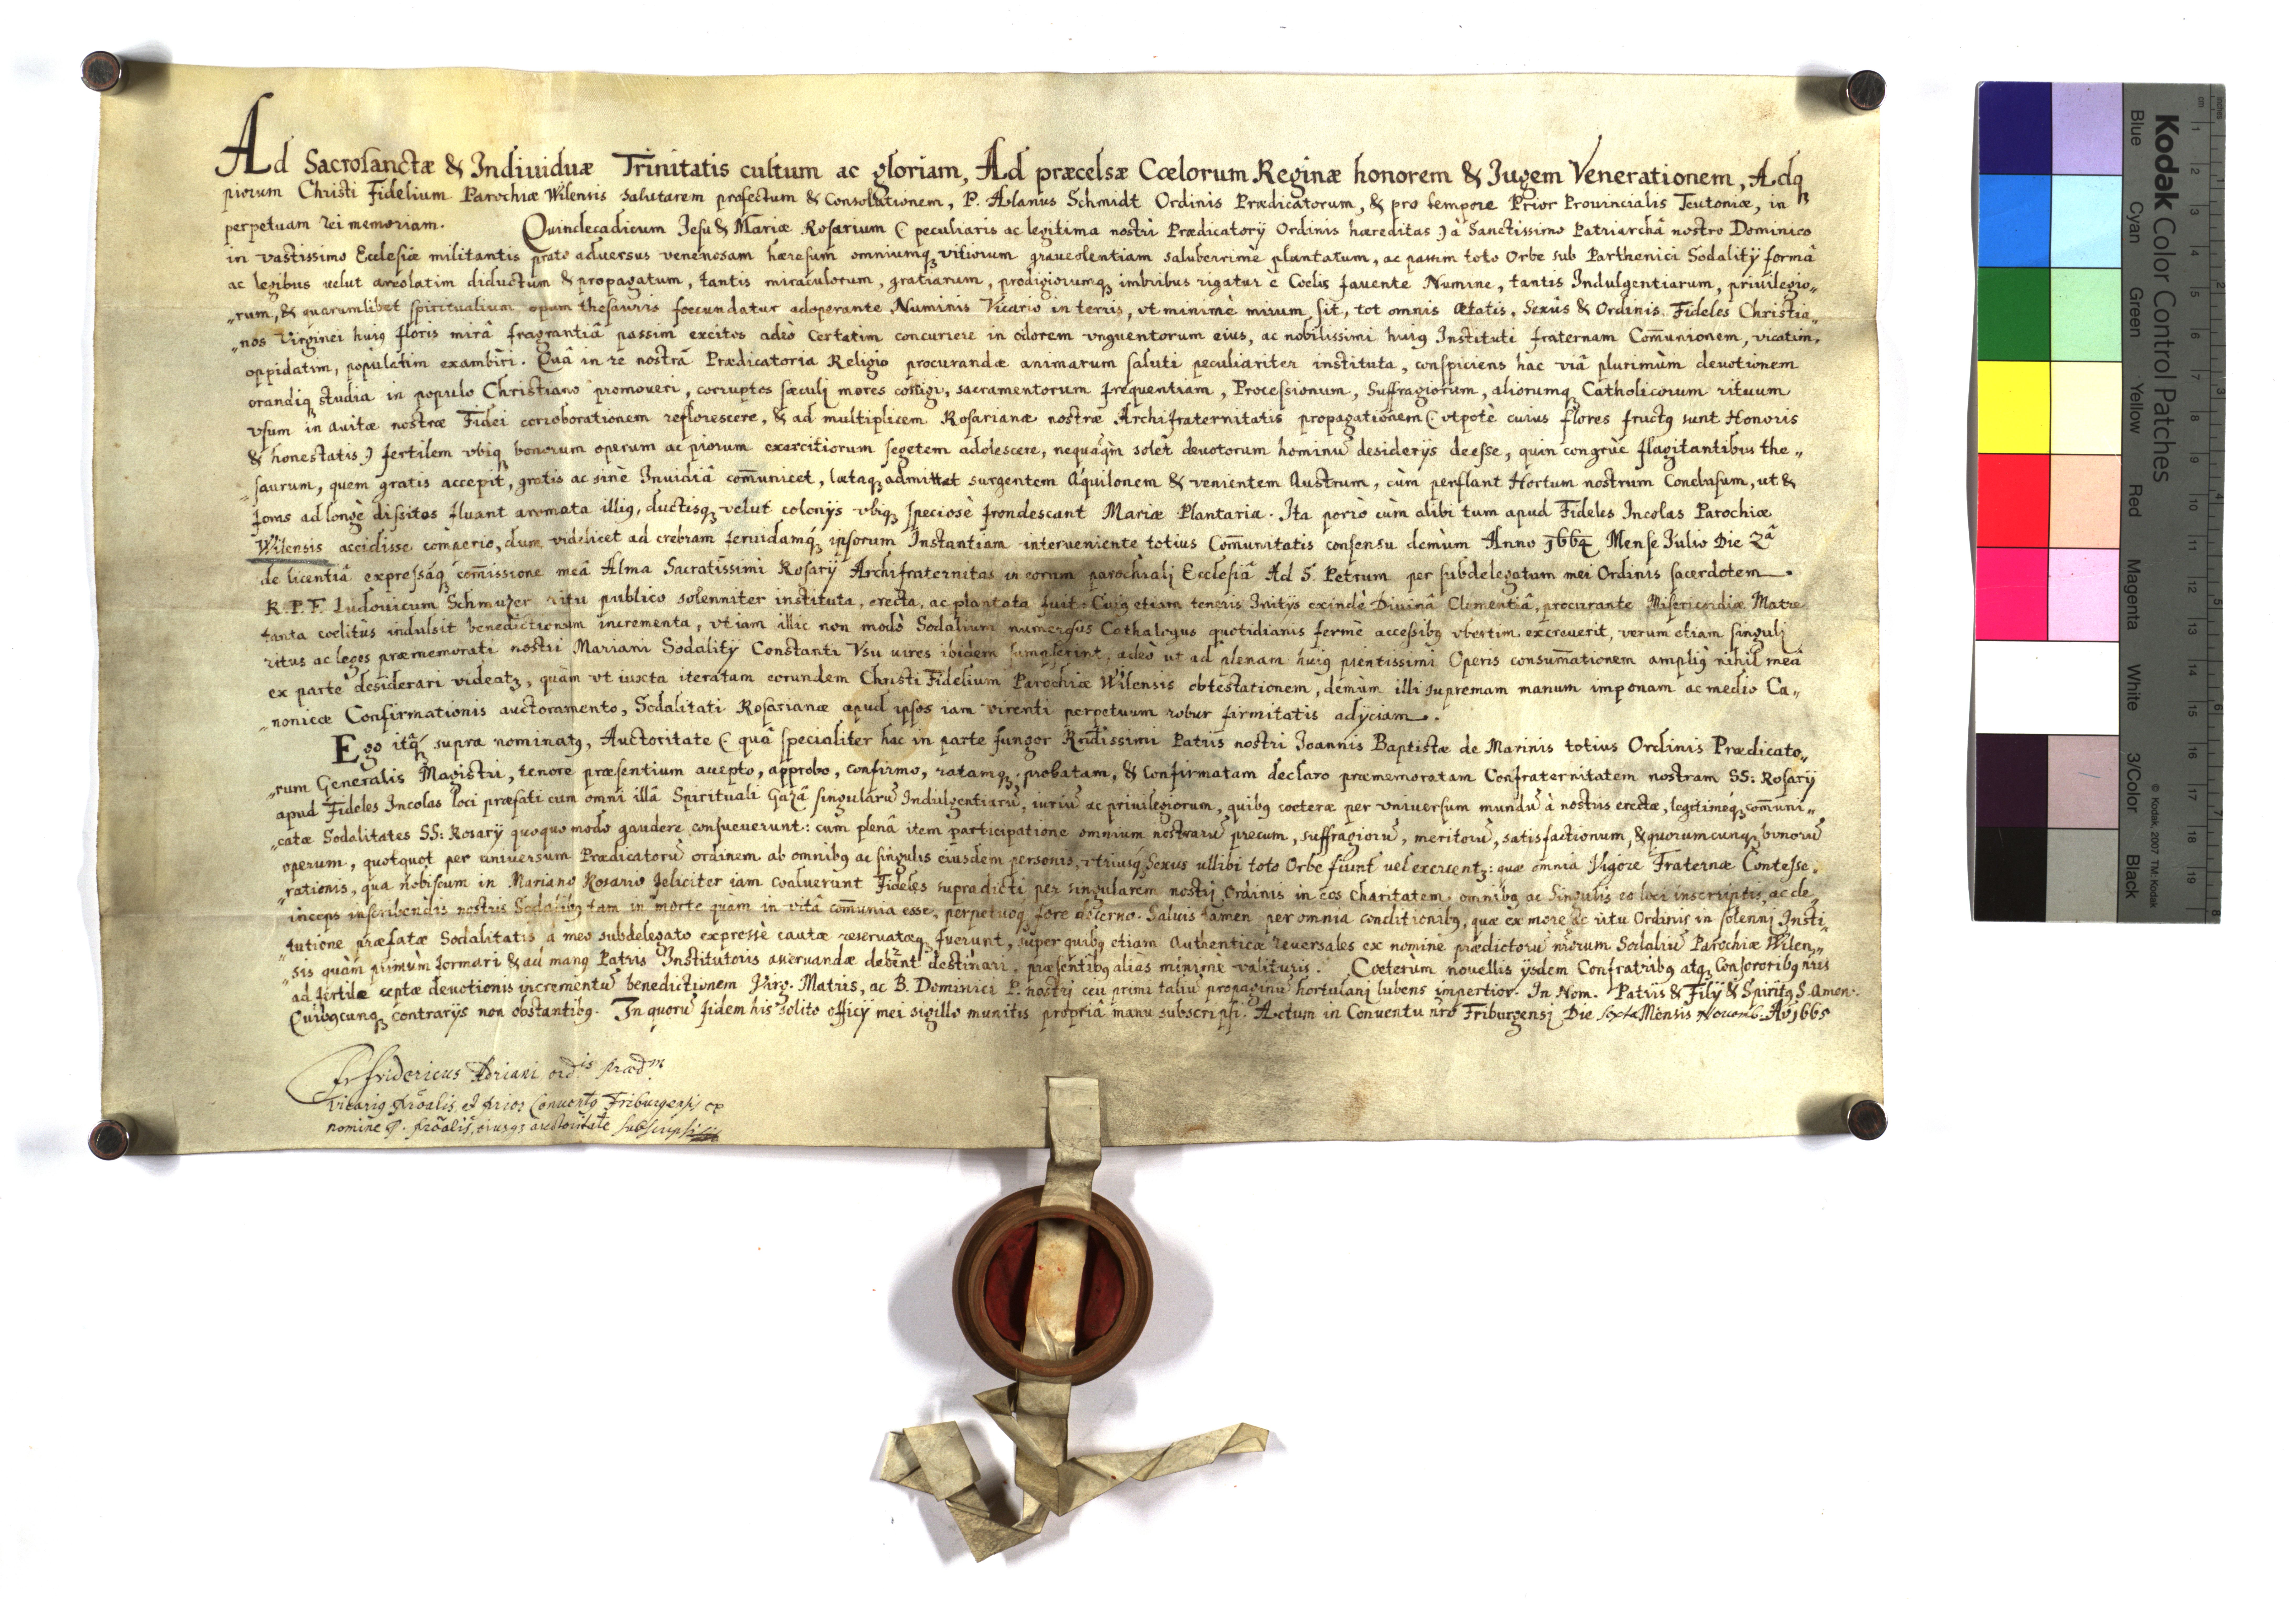 Ad Sacrosanctæ & Indiuiduæ Trinitatis cultum ac gloriam, Ad præcelsæ Cœlorum Reginæ honorem & Jugem Venerationem, Adq
piorum Christi Fidelium Parochiæ Wilensis salutarem profectum & Consolationem, P. Aslanus Schmidt Ordinis Prædicatorum, & pro tempore Prior Prouincialis Teutoniæ, in
perpetuam rei memoriam. Quindecadicum Jesu & Mariæ Rosarium (peculiaris ac legitima nostri Prædicatorÿ Ordinis hæreditas) à Sanctissimo Patriarchâ nostro Dominico
in vastissimo Ecclesiæ militantis prato aduersus venenosam hæresum omniumq vitiorum graueolentiam saluberrimè plantatum, ac passim toto Orbe sub Parthenici Sodalitÿ formâ
ac legibus uelut areolatim diductum & propagatum, tantis miraculorum, gratiarum, prodigiorumq imbribus rigatur è Cœlis fauente Numine, tantis Indulgentiarum, priuilegio„
„rum, & quarumlibet spiritualium opum thesauris fœcundatur adoperante Numinis Vicario in terris, vt minimè mirum sit, tot omnis Ætatis, Sexûs & Ordinis Fideles Christia„
„nos Virginei huiq floris mirâ fragrantiâ passim excitos adeò certatim concurrere in odorem vnguentorum eius, ac nobilissimi huiq Instituti fraternam Com̄unionem, vicatim,
oppidatim, populatim exambiri. Quâ in re nostrâ Prædicatoria Religio procurandæ animarum saluti peculiariter instituta, conspiciens hac viâ plurimùm deuotionem
orandiq studia in populo Christiano promoueri, corruptos sæculj mores corrigi, sacramentorum frequentiam, Processionum, Suffragiorum, aliorumq Catholicorum rituum
vsum in auitæ nostræ Fidei corroborationem reflorescere, & ad multiplicem Rosarianæ nostræ Archifraternitatis propagationem (vtpotè cuius flores fructq sunt Honoris
& honestatis) fertilem vbiq bonorum operum ac piorum exercitiorum segetem adolescere, nequaq̃m solet deuotorum hominū desiderÿs deesse, quin congruè flagitantibus the„
„saurum, quem gratis accepit, gratis ac sinè Inuidiâ com̄unicet, lætaq admittat surgentem Aquilonem & venientem Austrum, cùm perflant Hortum nostrum Conclusum, ut &
foras ad longè dissitos fluant aromata illiq, ductisq velut colonÿs vbiq speciosè frondescant Mariæ Plantaria. Ita porrò cùm alibi tum apud Fideles Incolas Parochiæ
Wilensis accidisse comperio, dum videlicet ad crebram feruidamq́ ipsorum Instantiam interueniente totius Com̄unitatis consensu demùm Anno 1664 Mense Julio Die 2â
de licentiâ expressáq com̄issione meâ Alma Sacratissimi Rosarÿ Archifraternitas in eorum parochialj Ecclesiâ Ad S. Petrum per subdelegatum mei Ordinis sacerdotem
R.P.F. Ludouicum Schmuzer ritu publico solenniter instituta, erecta, ac plantata fuit: Cuiq etiam teneris Initÿs exindè Diuinâ Clementiâ, procurante Misericordiæ Matre
tanta cœlitùs indulsit benedictionum incrementa, vt iam illic non modò Sodalium numerosus Cathalogus quotidianis fermè accessibq vbertim excreuerit, verum etiam singulj
ritus ac leges præmemorati nostri Mariani Sodalitÿ Constanti Vsu uires ibidem sumpserint, adeò ut ad plenam huiq pientissimi Operis consum̄ationem ampliq nihil meâ
ex parte desiderari videatz, quàm vt iuxta iteratam eorundem Christi Fidelium Parochiæ Wilensis obtestationem, demùm illi supremam manum imponam ac medio Ca„
„nonicæ Confirmationis auctoramento, Sodalitati Rosarianæ apud ipsos iam virenti perpetuum robur firmitatis adÿciam.
Ego itq́ supra nominatq, Auctoritate (quâ specialiter hac in parte fungor Rndissimi Patris nostri Joannis Baptistæ de Marinis totius Ordinis Prædicato„
„rum Generalis Magistri, tenore præsentium accepto, approbo, confirmo, ratamq, probatam, & confirmatam declaro præmemoratam Confraternitatem nostram SS: Rosarÿ
apud Fideles Incolas loci præfati cum omni illâ Spirituali Gazâ singularū Indulgentiarū, iuriū ac priuilegiorum, quibq cœteræ per vniuersum mundū à nostris erectæ, legitimeq́ com̄uni„
„catæ Sodalitates SS: Rosarÿ quoquo modo gaudere consueuerunt: cum plenâ item participatione omnium nostrarū precum, suffragiorū, meritorū, satisfactionum, & quorumcunq bonorū
operum, quotquot per vniuersum Prædicatorū ordinem ab omnibq ac singulis eiusdem personis, vtriusq Sexus ullibi toto Orbe fiunt uel exercentz: quæ omnia Vigore Fraternæ Contesse„
„rationis, qua nobiscum in Mariano Rosario feliciter iam coaluerunt Fideles supradicti per singularem nostrj Ordinis in eos Charitatem omnibq ac Singulis eo loci inscriptis, ac de„
„inceps inscribendis nostris Sodalibq tam in morte quàm in vitâ com̄unia esse, perpetuoq fore decerno. Saluis tamen per omnia conditionibq, quæ ex more ac ritu Ordinis in solennj Insti„
„tutione præfatæ Sodalitatis à meo subdelegato expressè cautæ reseruatæq fuerunt, super quibq etiam Authenticæ reuersales ex nomine prædictorū nrorum Sodaliū Parochiæ Wilen„
„sis quàm primùm formari & ad manq Patris Institutoris asseruandæ debent destinari, præsentibq aliàs minimè valituris. Cœterùm nouellis ÿsdem Confratribq atq Consororibq nris
ad fertile ceptæ deuotionis incrementū benedictionem Virg. Matris, ac B. Dominici P. nostrj ceu primi taliū propaginū hortulanj lubens impertior. In Nom. Patris & Filÿ & Spiritq S. Amen.
Quibqcunq contrarÿs non obstantibq. In quorū fidem his solito officÿ mei sigillo munitis propriâ manu subscripsi. Actum in Conuentu nro Friburgensj Die sexta Mensis Nouemb: Aō 1665
Fr Fridericus Adriani ordis Præd.m
Vicariq prōalis, et prior Conuentq Friburgensis ex
nomine P. prōalis, eiusq auctoritate subscripsi
Kodak Color Control Patches
Blue Cyan Green Yellow Red Magenta White 3/Color Black
© Kodak, 2007 TM: Kodak
cm 1 2 3 4 5 6 7 8 9 10 11 12 13 14 15 16 17 18 19
inches 1 2 3 4 5 6 7 8